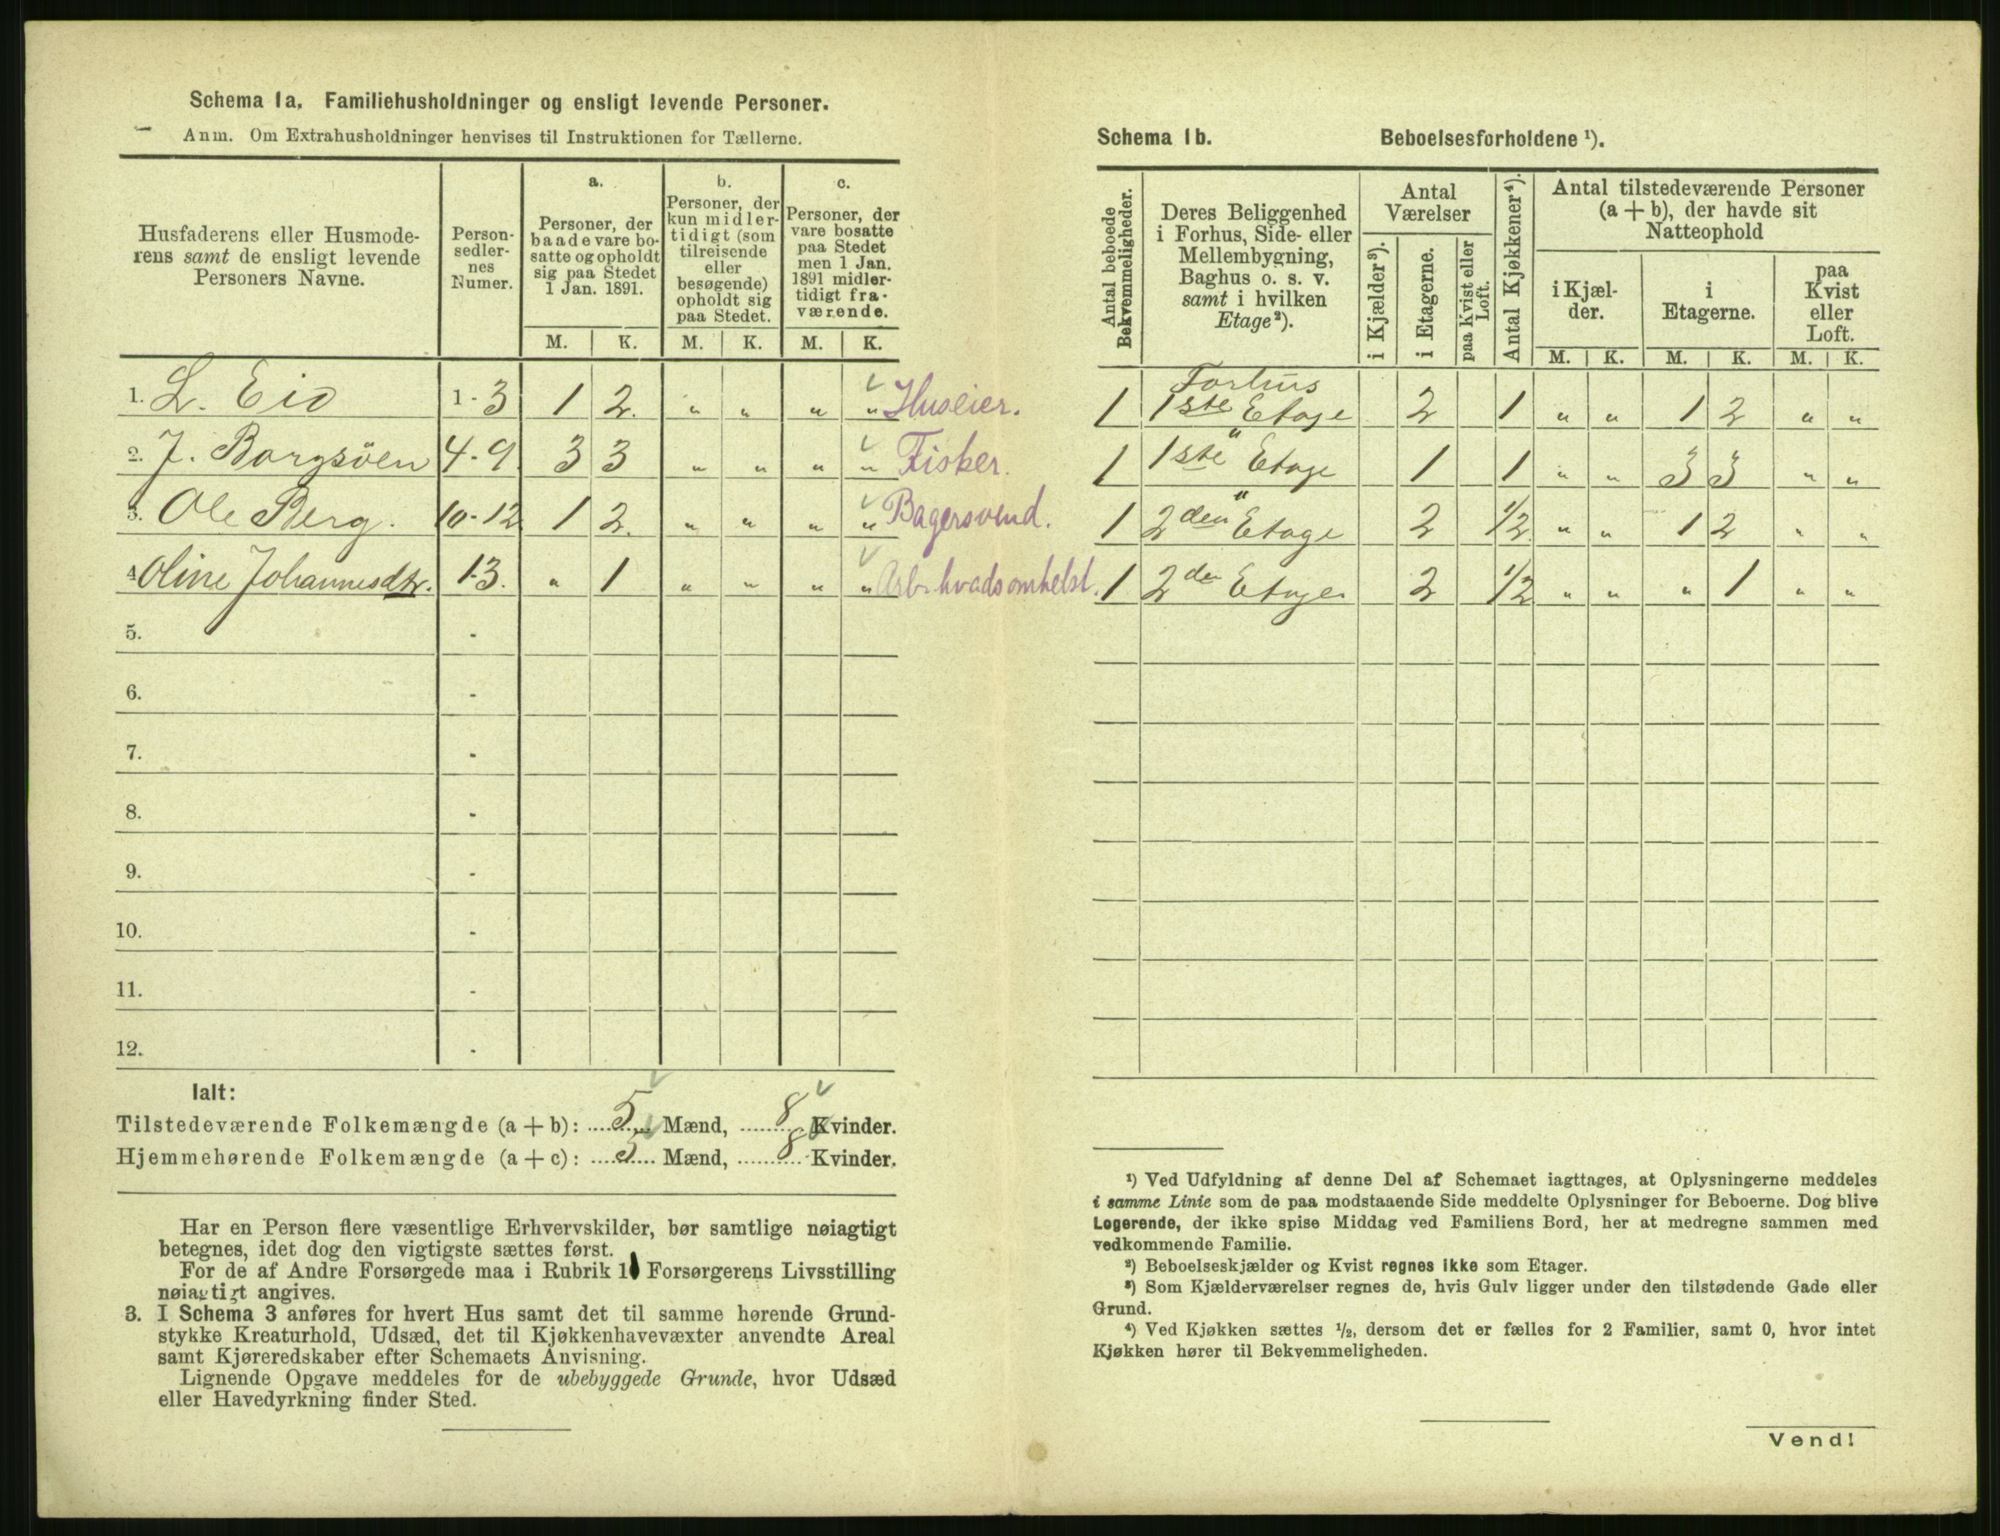 Schema 1a. Familiehusholdninger og ensligt levende Personer.
Anm. Om Extrahusholdninger henvises til Instruktionen for Tællerne.
Husfaderens eller Husmode-
rens samt de ensligt levende
Personers Navne.
Person-
sedler-
nes
Numer.
a.
Personer, der
baade vare bo-
satte og opholdt
sig paa Stedet
1 Jan. 1891.
b.
Personer, der
kun midler-
tidigt (som
tilreisende
eller
besøgende)
opholdt sig
paa Stedet.
c.
Personer, der
vare bosatte
paa Stedet
men 1 Jan.
1891 midler-
tidigt fra-
værende.
M. K. M. K. M. K.
1. L. Eid 1-3 1 2. " " " " Huseier.
2. J. Borgsöen 4-9 3 3 " " " " Fisker.
3. Ole Berg. 10-12 1 2. " " " " Bagersvend.
4 Oline Johannesdtr. 13. " 1 " " " " Arb. hvadsomhelst.
5. -
6. -
7. -
8. -
9. -
10. -
11. -
12. -
Ialt:
Tilstedeværende Folkemængde (a + b): 5 Mænd, 8 Kvinder.
Hjemmehørende Folkemængde (a + c): 5 Mænd, 8 Kvinder.
Har en Person flere væsentlige Erhvervskilder, bør samtlige nøiagtigt
betegnes, idet dog den vigtigste sættes først.
For de af Andre Forsørgede maa i Rubrik 1 Forsørgerens Livsstilling
nøiagtigt angives.
3. I Schema 3 anføres for hvert Hus samt det til samme hørende Grund-
stykke Kreaturhold, Udsæd, det til Kjøkkenhavevæxter anvendte Areal
samt Kjøreredskaber efter Schemaets Anvisning.
Lignende Opgave meddeles for de ubebyggede Grunde, hvor Udsæd
eller Havedyrkning finder Sted.
Schema 1b. Beboelsesforholdene ¹).
Antal beboede
Bekvemmeligheder.
Deres Beliggenhed
i Forhus, Side- eller
Mellembygning,
Baghus o. s. v.
samt i hvilken
Etage²).
Antal
Værelser
i Kjælder³).
i Etagerne.
paa Kvist eller
Loft.
Antal Kjøkkener⁴).
Antal tilstedeværende Personer
(a + b), der havde sit
Natteophold
i Kjæl-
der.
i
Etagerne.
paa
Kvist
eller
Loft.
M. K. M. K. M. K.
Forhus
1 1ste Etage 2 1 " " 1 2 " "
"
1 1ste Etage 1 1 " " 3 3 " "
"
1 2den Etage 2 1/2 " " 1 2 " "
1 2den Etage 2 1/2 " " " 1 " "
¹) Ved Udfyldning af denne Del af Schemaet iagttages, at Oplysningerne meddeles
i samme Linie som de paa modstaaende Side meddelte Oplysninger for Beboerne. Dog blive
Logerende, der ikke spise Middag ved Familiens Bord, her at medregne sammen med
vedkommende Familie.
²) Beboelseskjælder og Kvist regnes ikke som Etager.
³) Som Kjælderværelser regnes de, hvis Gulv ligger under den tilstødende Gade eller
Grund.
⁴) Ved Kjøkken sættes ½, dersom det er fælles for 2 Familier, samt 0, hvor intet
Kjøkken hører til Bekvemmeligheden.
Vend!